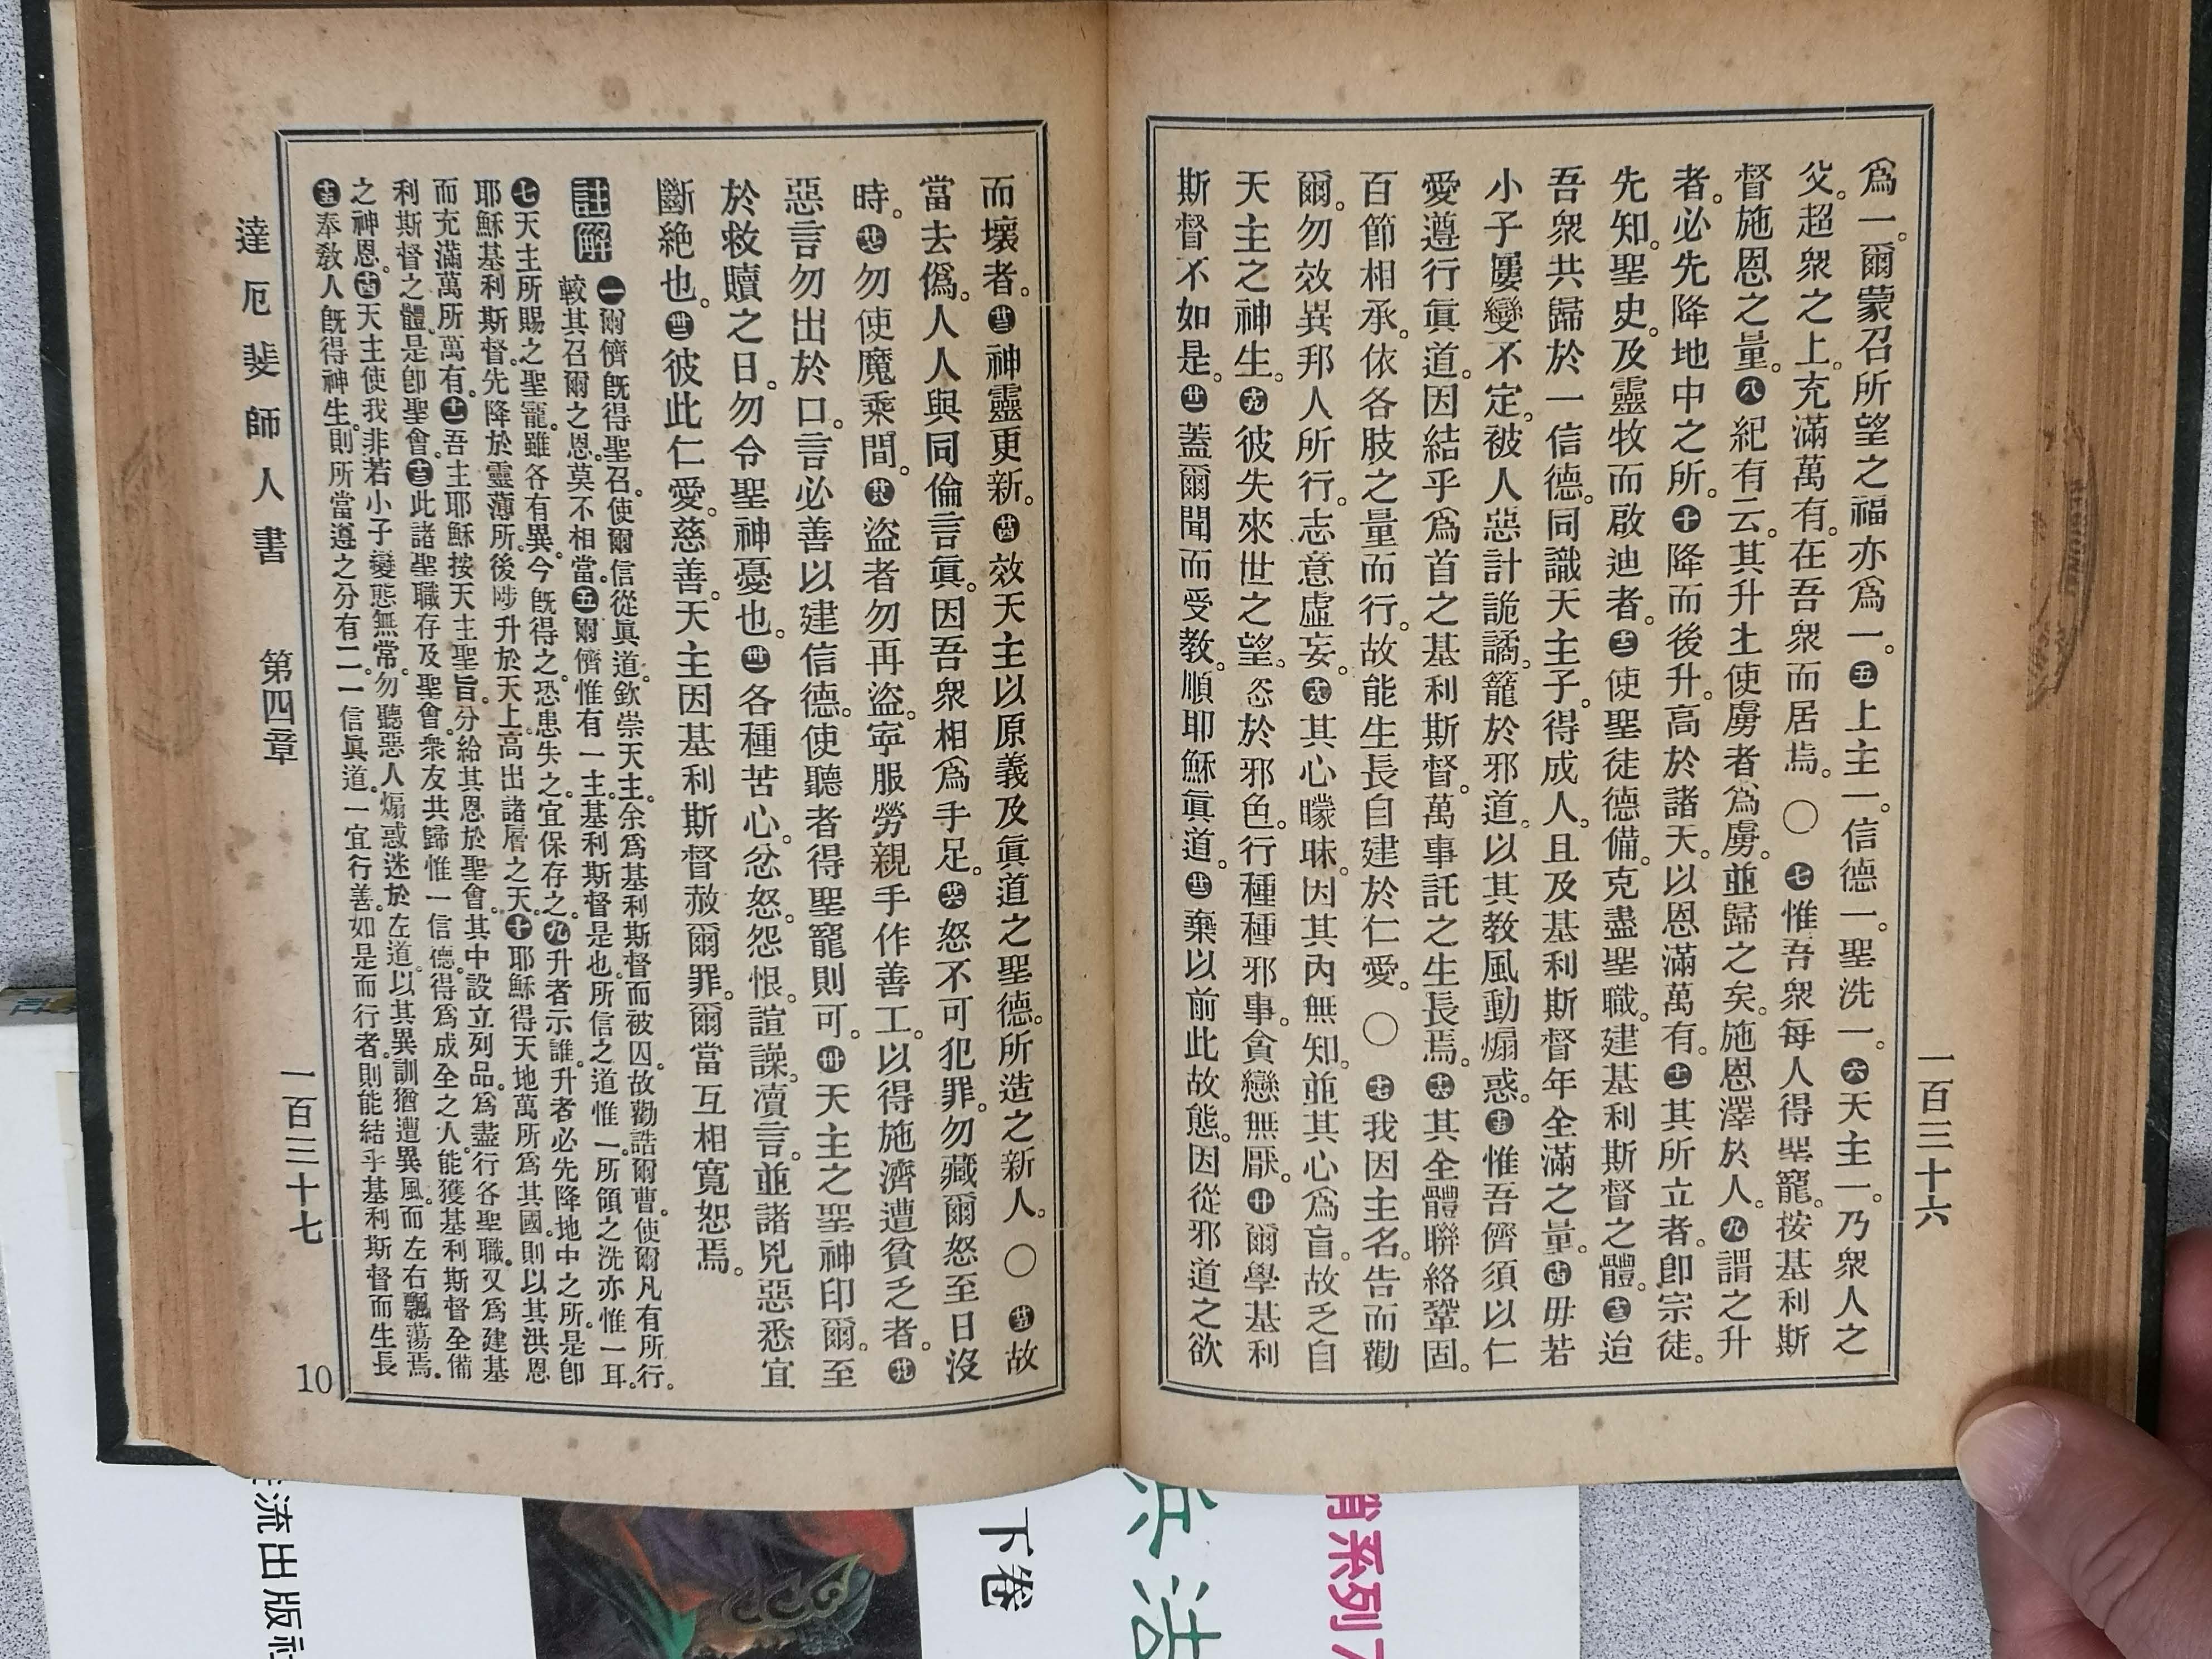 一百三十六
爲一。爾蒙召所望之福亦爲一。㊄上主一。信德一。聖洗一。㊅天主一。乃衆人之
父。超衆之上。充滿萬有。在吾衆而居焉。〇㊆惟吾衆每人得聖寵。按基利斯
督施恩之量。㊇紀有云。其升上使虜者爲虜。並歸之矣。施恩澤於人。㊈謂之升
者。必先降地中之所。㊉降而後升。高於諸天。以恩滿萬有。十一其所立者。卽宗徒。
先知。聖史。及靈牧而啟迪者。十二使聖徒德備。克盡聖職。建基利斯督之體。十三迨
吾衆共歸於一信德。同識天主子。得成人。且及基利斯督年全滿之量。十四毋若
小子屢變不定。被人惡計詭譎。籠於邪道。以其教風動煽惑。十五惟吾儕須以仁
愛遵行眞道。因結乎爲首之基利斯督。萬事託之生長焉。十六其全體聯絡鞏固。
百節相承。依各肢之量而行。故能生長自建於仁愛。〇十七我因主名。告而勸
爾。勿效異邦人所行。志意虛妄。十八其心矇昧。因其內無知。並其心爲盲。故乏自
天主之神生。十九彼失來世之望。恣於邪色。行種種邪事。貪戀無厭。廿爾學基利
斯督不如是。廿一蓋爾聞而受教。順耶穌眞道。廿二棄以前此故態。因從邪道之欲
而壞者。廿三神靈更新。廿四效天主以原義及眞道之聖德。所造之新人。〇廿五故
當去僞。人人與同倫言眞。因吾衆相爲手足。廿六怒不可犯罪。勿藏爾怒至日沒
時。廿七勿使魔乘間。廿八盜者勿再盜。寧服勞親手作善工。以得施濟遭貧乏者。廿九
惡言勿出於口。言必善以建信德。使聽者得聖寵則可。卅天主之聖神印爾。至
於救贖之日。勿令聖神憂也。卅一各種苦心。忿怒。怨恨。諠譟。瀆言。並諸兇惡悉宜
斷絶也。卅二彼此仁愛。慈善。天主因基利斯督赦爾罪。爾當互相寬恕焉。
註解 ㊀爾儕旣得聖召。使爾信從眞道。欽崇天主。余爲基利斯督而被囚。故勸誥爾曹。使爾凡有所行。
較其召爾之恩。莫不相當。㊄爾儕惟有一主。基利斯督是也。所信之道惟一。所領之洗亦惟一耳。
㊆天主所賜之聖寵。雖各有異。今旣得之。恐患失之。宜保存之。㊈升者示誰。升者必先降地中之所。是卽
耶穌基利斯督。先降於靈薄所。後陟升於天上。高出諸層之天。㊉耶穌得天地萬所爲其國。則以其洪恩
而充滿萬所萬有。十一吾主耶穌按天主聖旨。分給其恩於聖會。其中設立列品。爲盡行各聖職。又爲建基
利斯督之體。是卽聖會。十三此諸聖職存及聖會。衆友共歸惟一信德。得爲成全之人。能獲基利斯督全備
之神恩。十四天主使我非若小子變態無常。勿聽惡人煽惑迷於左道。以其異訓猶遭異風。而左右飄蕩焉。
十五奉敎人旣得神生。則所當遵之分有二。一信眞道。一宜行善。如是而行者。則能結乎基利斯督而生長
達厄斐師人書 第四章 一百三十七
10
流出版社
下卷
兵法
系列7